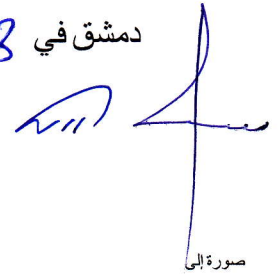 دمشق في
صورة إلى